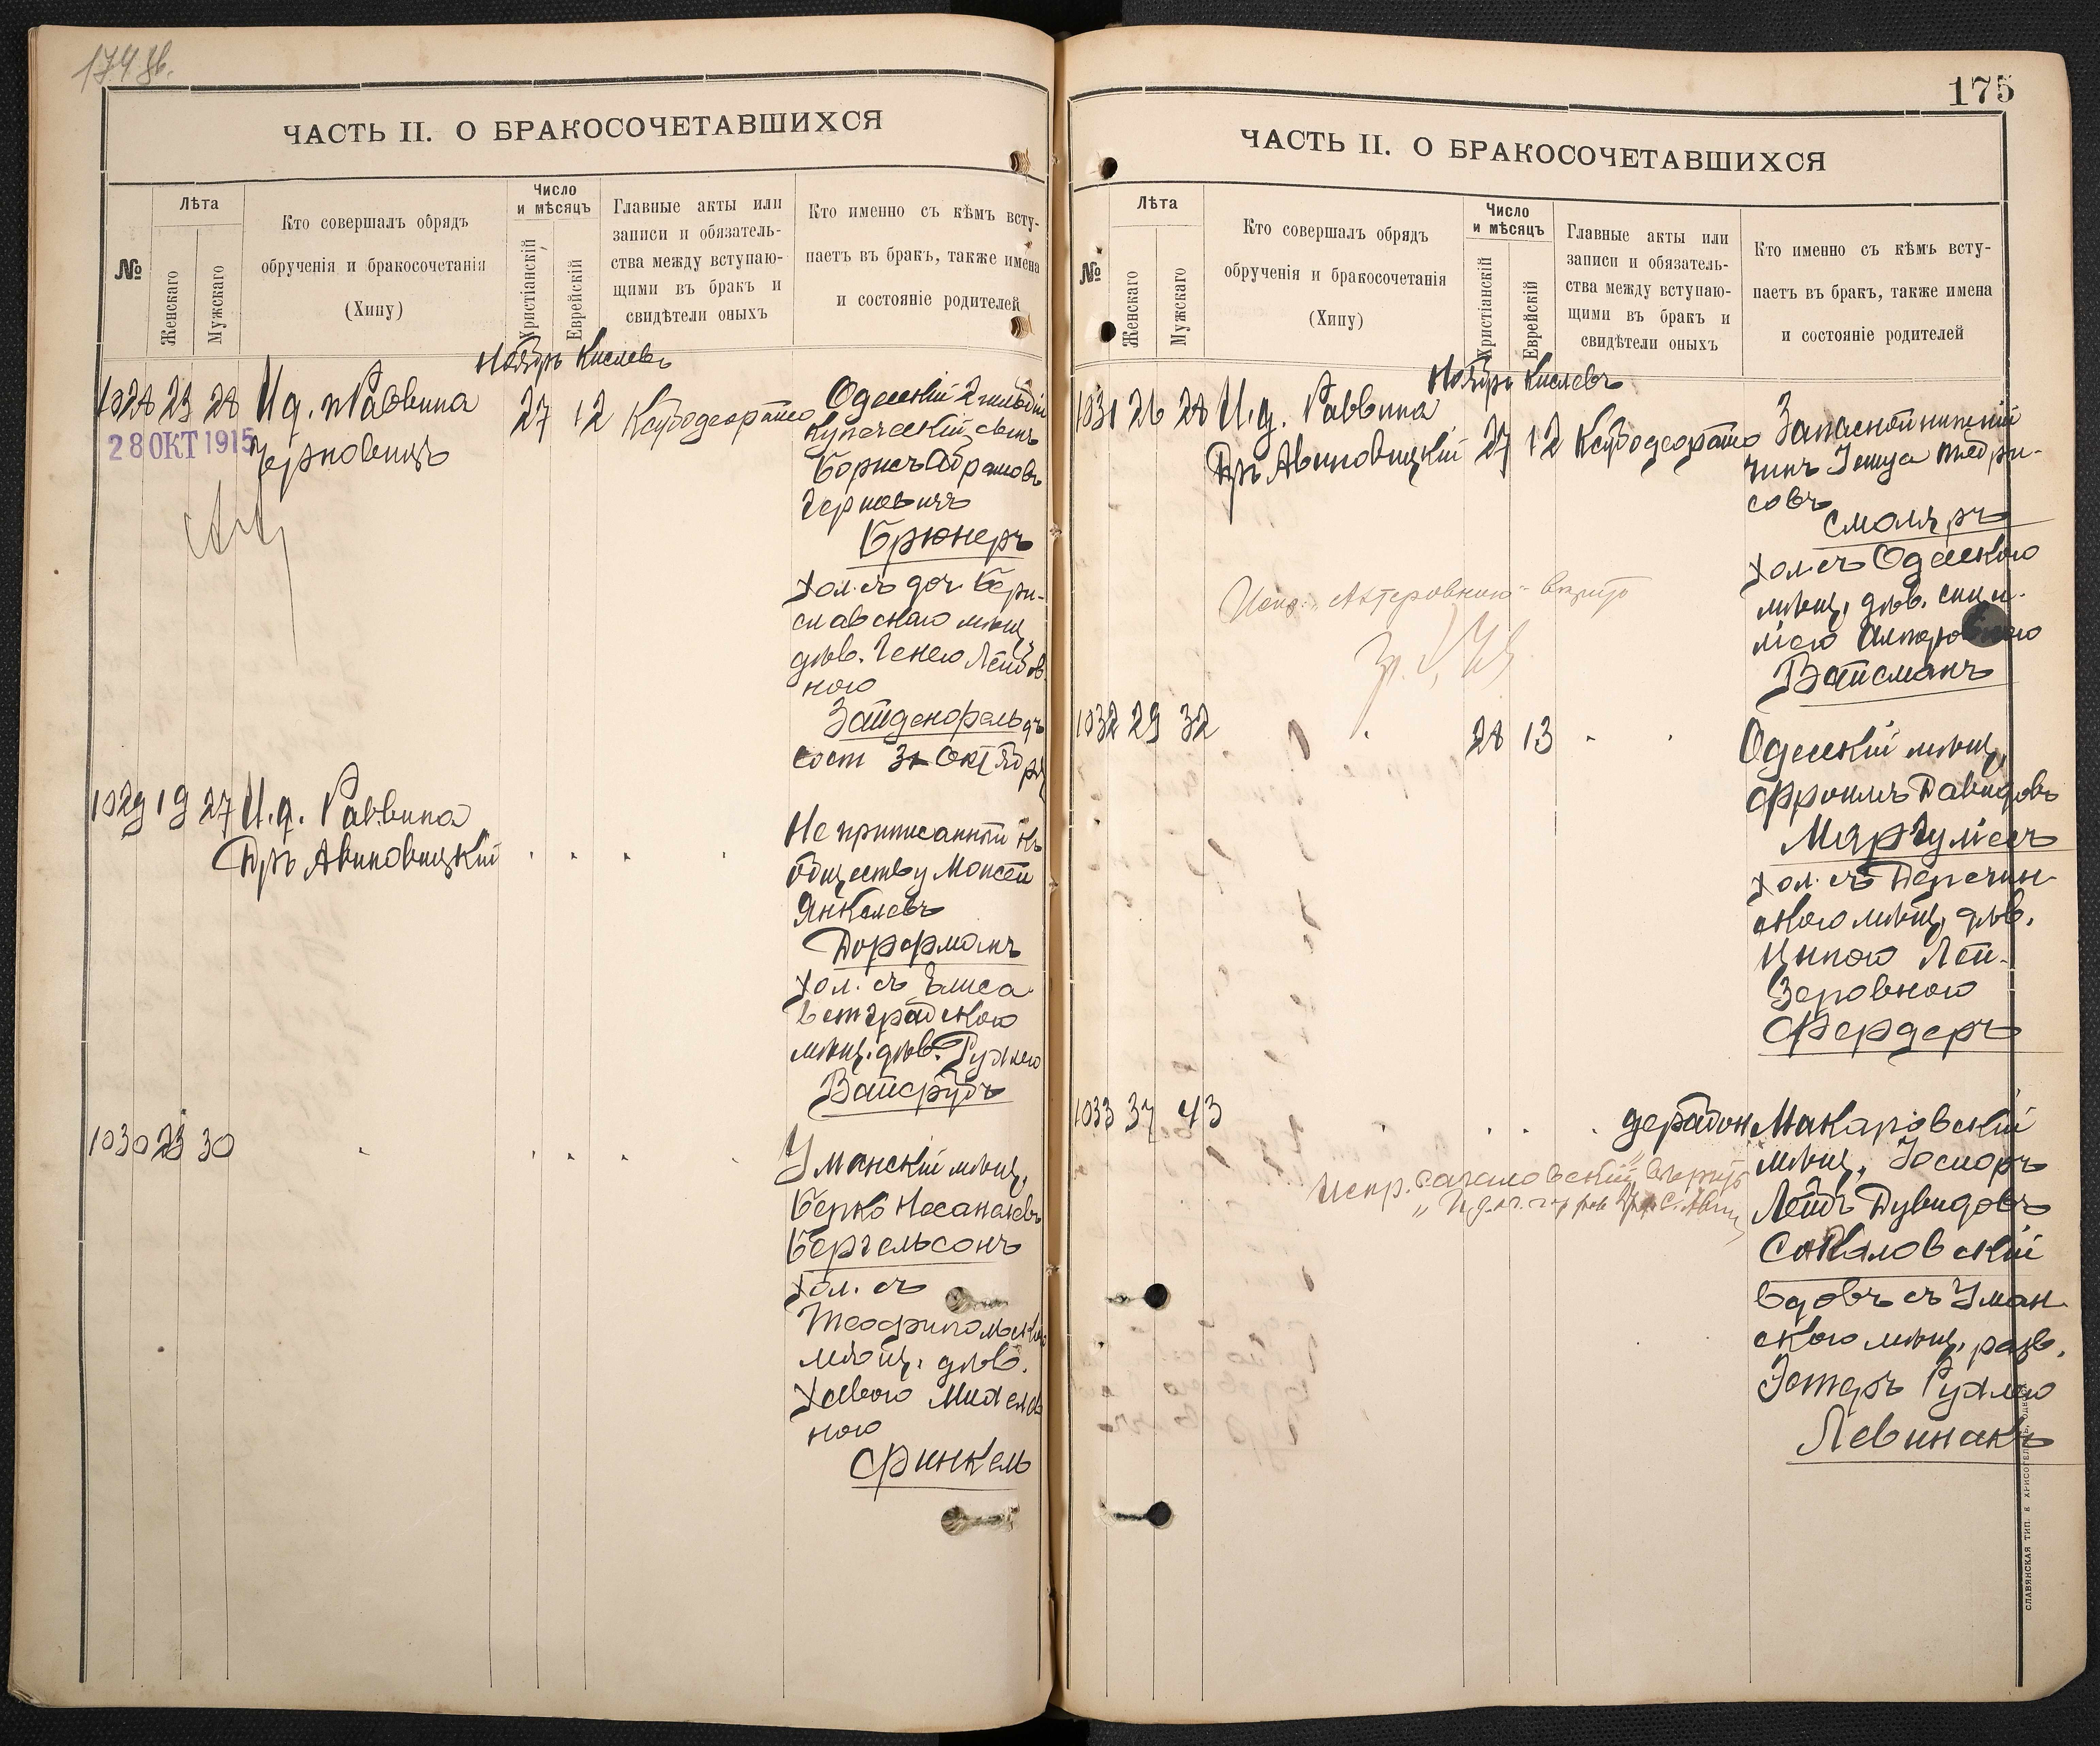 174 об.
ЧАСТЬ II. О БРАКОСОЧЕТАВШИХСЯ
№
Лѣта
Женскаго
Мужскаго
Кто совершалъ обрядъ
обрученія и бракосочетанія
(Хипу)
Число
и мѣсяцъ
Христіанскій
Еврейскій
Главные акты или
записи и обязатель-
ства между вступаю-
щими въ бракъ и
свидѣтели оныхъ
Кто именно съ кѣмъ всту-
паетъ въ бракъ, также имена
и состояніе родителей
Ноябрь Кислевъ
1028 23 28 И.д. Раввина
Черновицъ
28 ОКТ 1915
27 12
Одесскій 2 гильдіи
купеческій сынъ
Борисъ Абрамовъ
Черновичъ
Брюнеръ
хол. съ доч. Бери-
славскаго мѣщ.
дѣв. Генею Лейбов-
ною
Зайденфельдъ
сост 31 Октября
1029 19 27 И.д. Раввина
Дръ Авиновицкій
Не приписанный къ
обществу Моисей
Янкелевъ
Дорфманъ
хол. съ Елиса
ветградскою
мѣщ. дѣв. Рухлею
Вайсрубъ
1030 23 30
Уманскій мѣщ.
Берко Несанелевъ
Бергельсонъ
хол. съ
Теофипольскою
мѣщ. дѣв.
Хавою Михелев
ною
Финкель
175
ЧАСТЬ II. О БРАКОСОЧЕТАВШИХСЯ
№
Лѣта
Женскаго
Мужскаго
Кто совершалъ обрядъ
обрученія и бракосочетанія
(Хипу)
Число
и мѣсяцъ
Христіанскій
Еврейскій
Главные акты или
записи и обязатель-
ства между вступаю-
щими въ бракъ и
свидѣтели оныхъ
Кто именно съ кѣмъ всту-
паетъ въ бракъ, также имена
и состояніе родителей
Ноябрь Кислевъ
1031 26 28 И.д. Раввина
Дръ Авиновицкій
27 12
Запасной нижній
чинъ Іешуа
Смоляръ
хол. съ Одесскою
мѣщ. дѣв.
Вайсманъ
1032 29 32
28 13
Одесскій мѣщ.
Фроимъ Давидовъ
Маргулисъ
хол. съ
скою мѣщ. дѣв.
Ципою Лей-
зеровною
Фердеръ
1033 37 43
Макаровскій
мѣщ. Іосифъ
Лейбъ Дувидовъ
Сокаловскій
вдовъ съ Уман
скою мѣщ. разв.
Эстеръ Рухлею
Левинакъ
СЛАВЯНСКАЯ ТИП. Е. ХРИСОГЕЛОСЪ, ОДЕССА